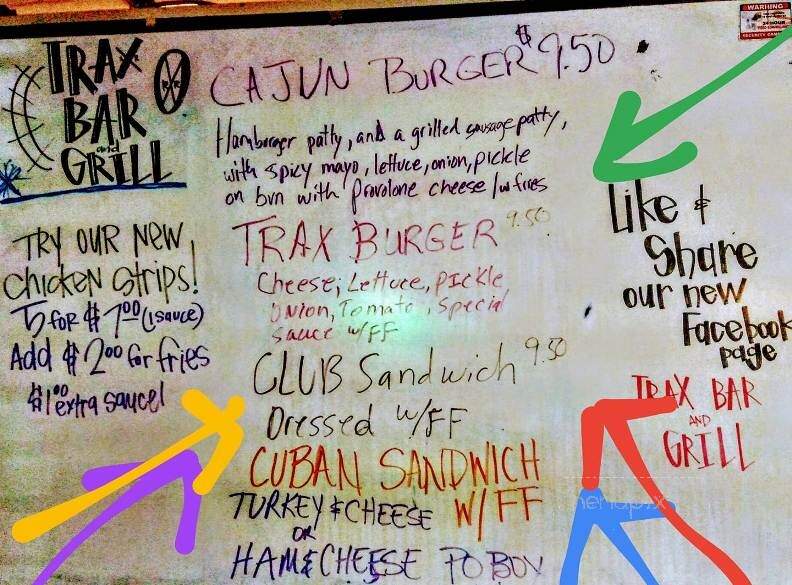 TRAX
BAR
and
GRILL
TRY OUR NEW
CHICKEN STRIPS!
5 FOR $7.00 (1 SAUCE)
Add $2.00 for fries
$1.00 extra sauce!
CAJUN BURGER $9.50
Hamburger patty, and a grilled sausage patty,
with spicy mayo, lettuce, onion, pickle
on bun with provolone cheese /w fries
TRAX BURGER 9.50
Cheese, Lettuce, Pickle
Onion, Tomato, Special
sauce w/FF
CLUB Sandwich 9.50
Dressed w/FF
CUBAN SANDWICH
W/FF
TURKEY & CHEESE
OR
HAM & CHEESE PO BOY
WARNING
24 HOUR
SECURITY
Like &
Share
our new
Facebook
page
TRAX BAR
AND
GRILL
menupix